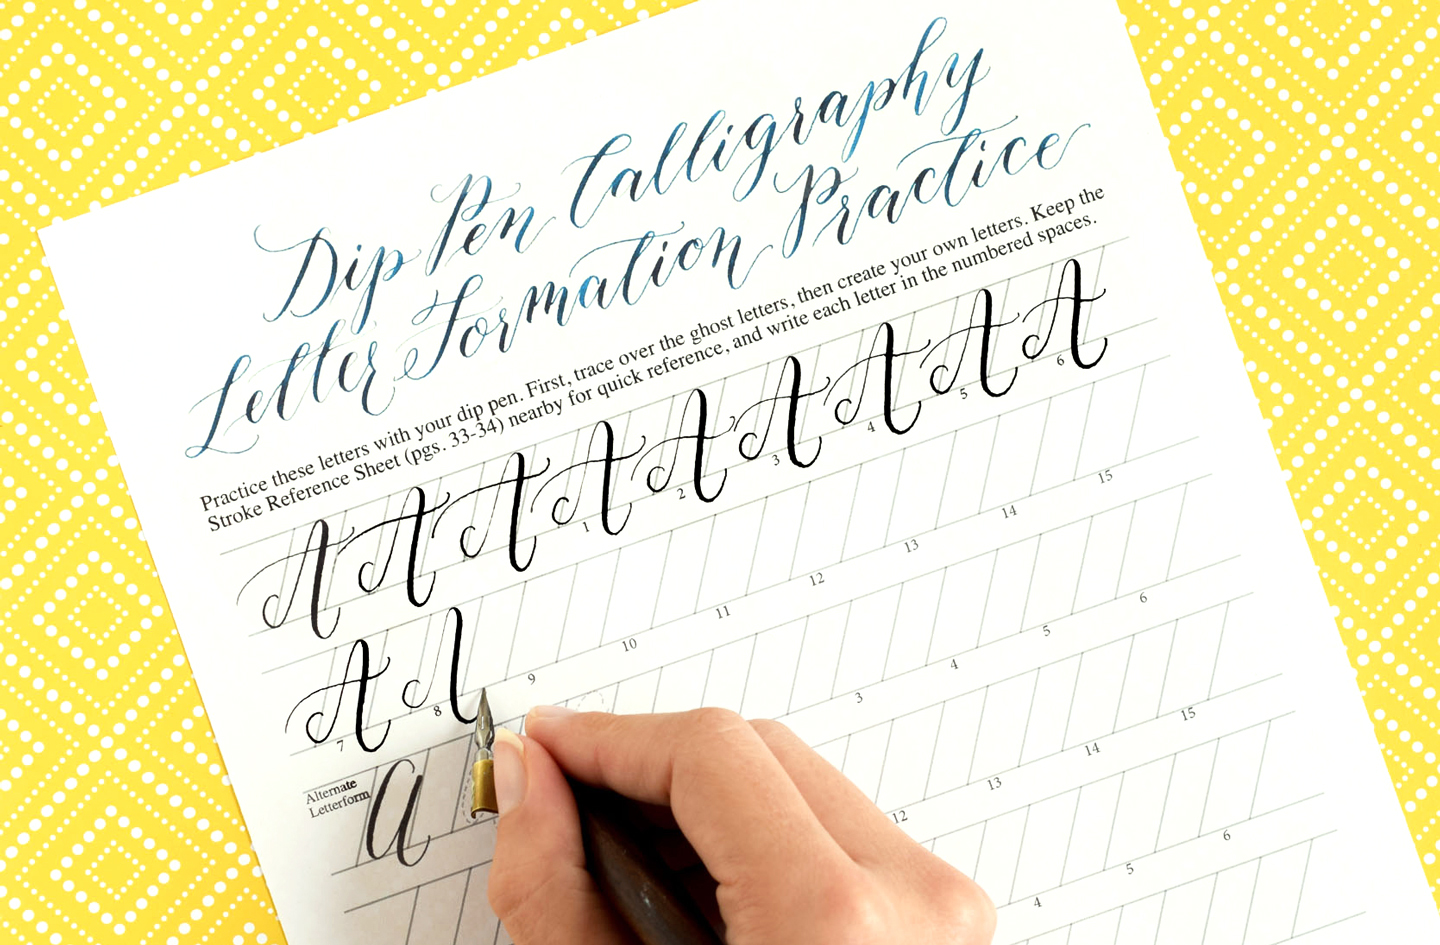 Dip Pen Calligraphy
Letter Formation Practice
Practice these letters with your dip pen. First, trace over the ghost letters, then create your own letters. Keep the
Stroke Reference Sheet (pgs. 33-34) nearby for quick reference, and write each letter in the numbered spaces.
A A A A A A A A A
1 2 3 4 5 6
A
7 8 9 10 11 12 13 14 15
Alternate
Letterform
a
3 4 5 6
12 13 14 15
4 5 6